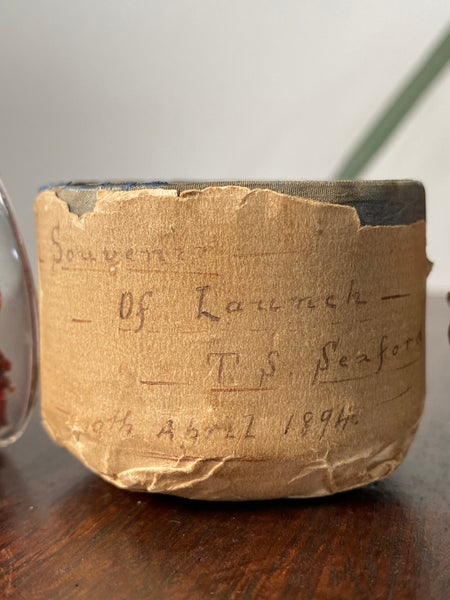 Souvenir
Of Launch
T. S. Seaford
April 1894